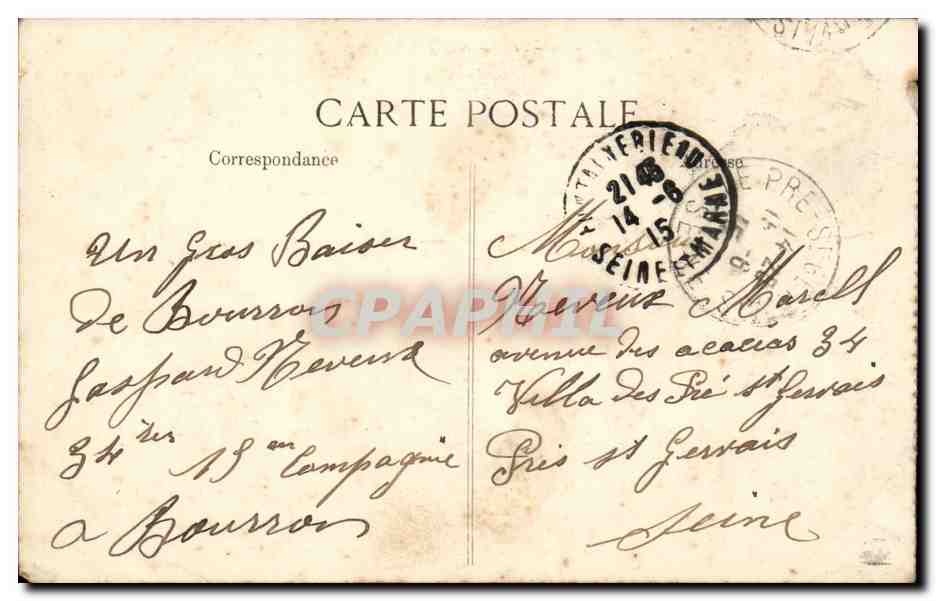 CARTE POSTALE
Correspondance
Un Gros Baiser
de Bourron
Gaspard Neveux
34 15 em Compagnie
a Bourron
Monsieur
Neveux Marcell
avenue des acacias 34
Villa des Pré st Gervais
Près st Gervais
Seine
21 45
14 -6 15
SEINE ET MARNE
LE PRE-ST-GERVAIS
CPAPHIL